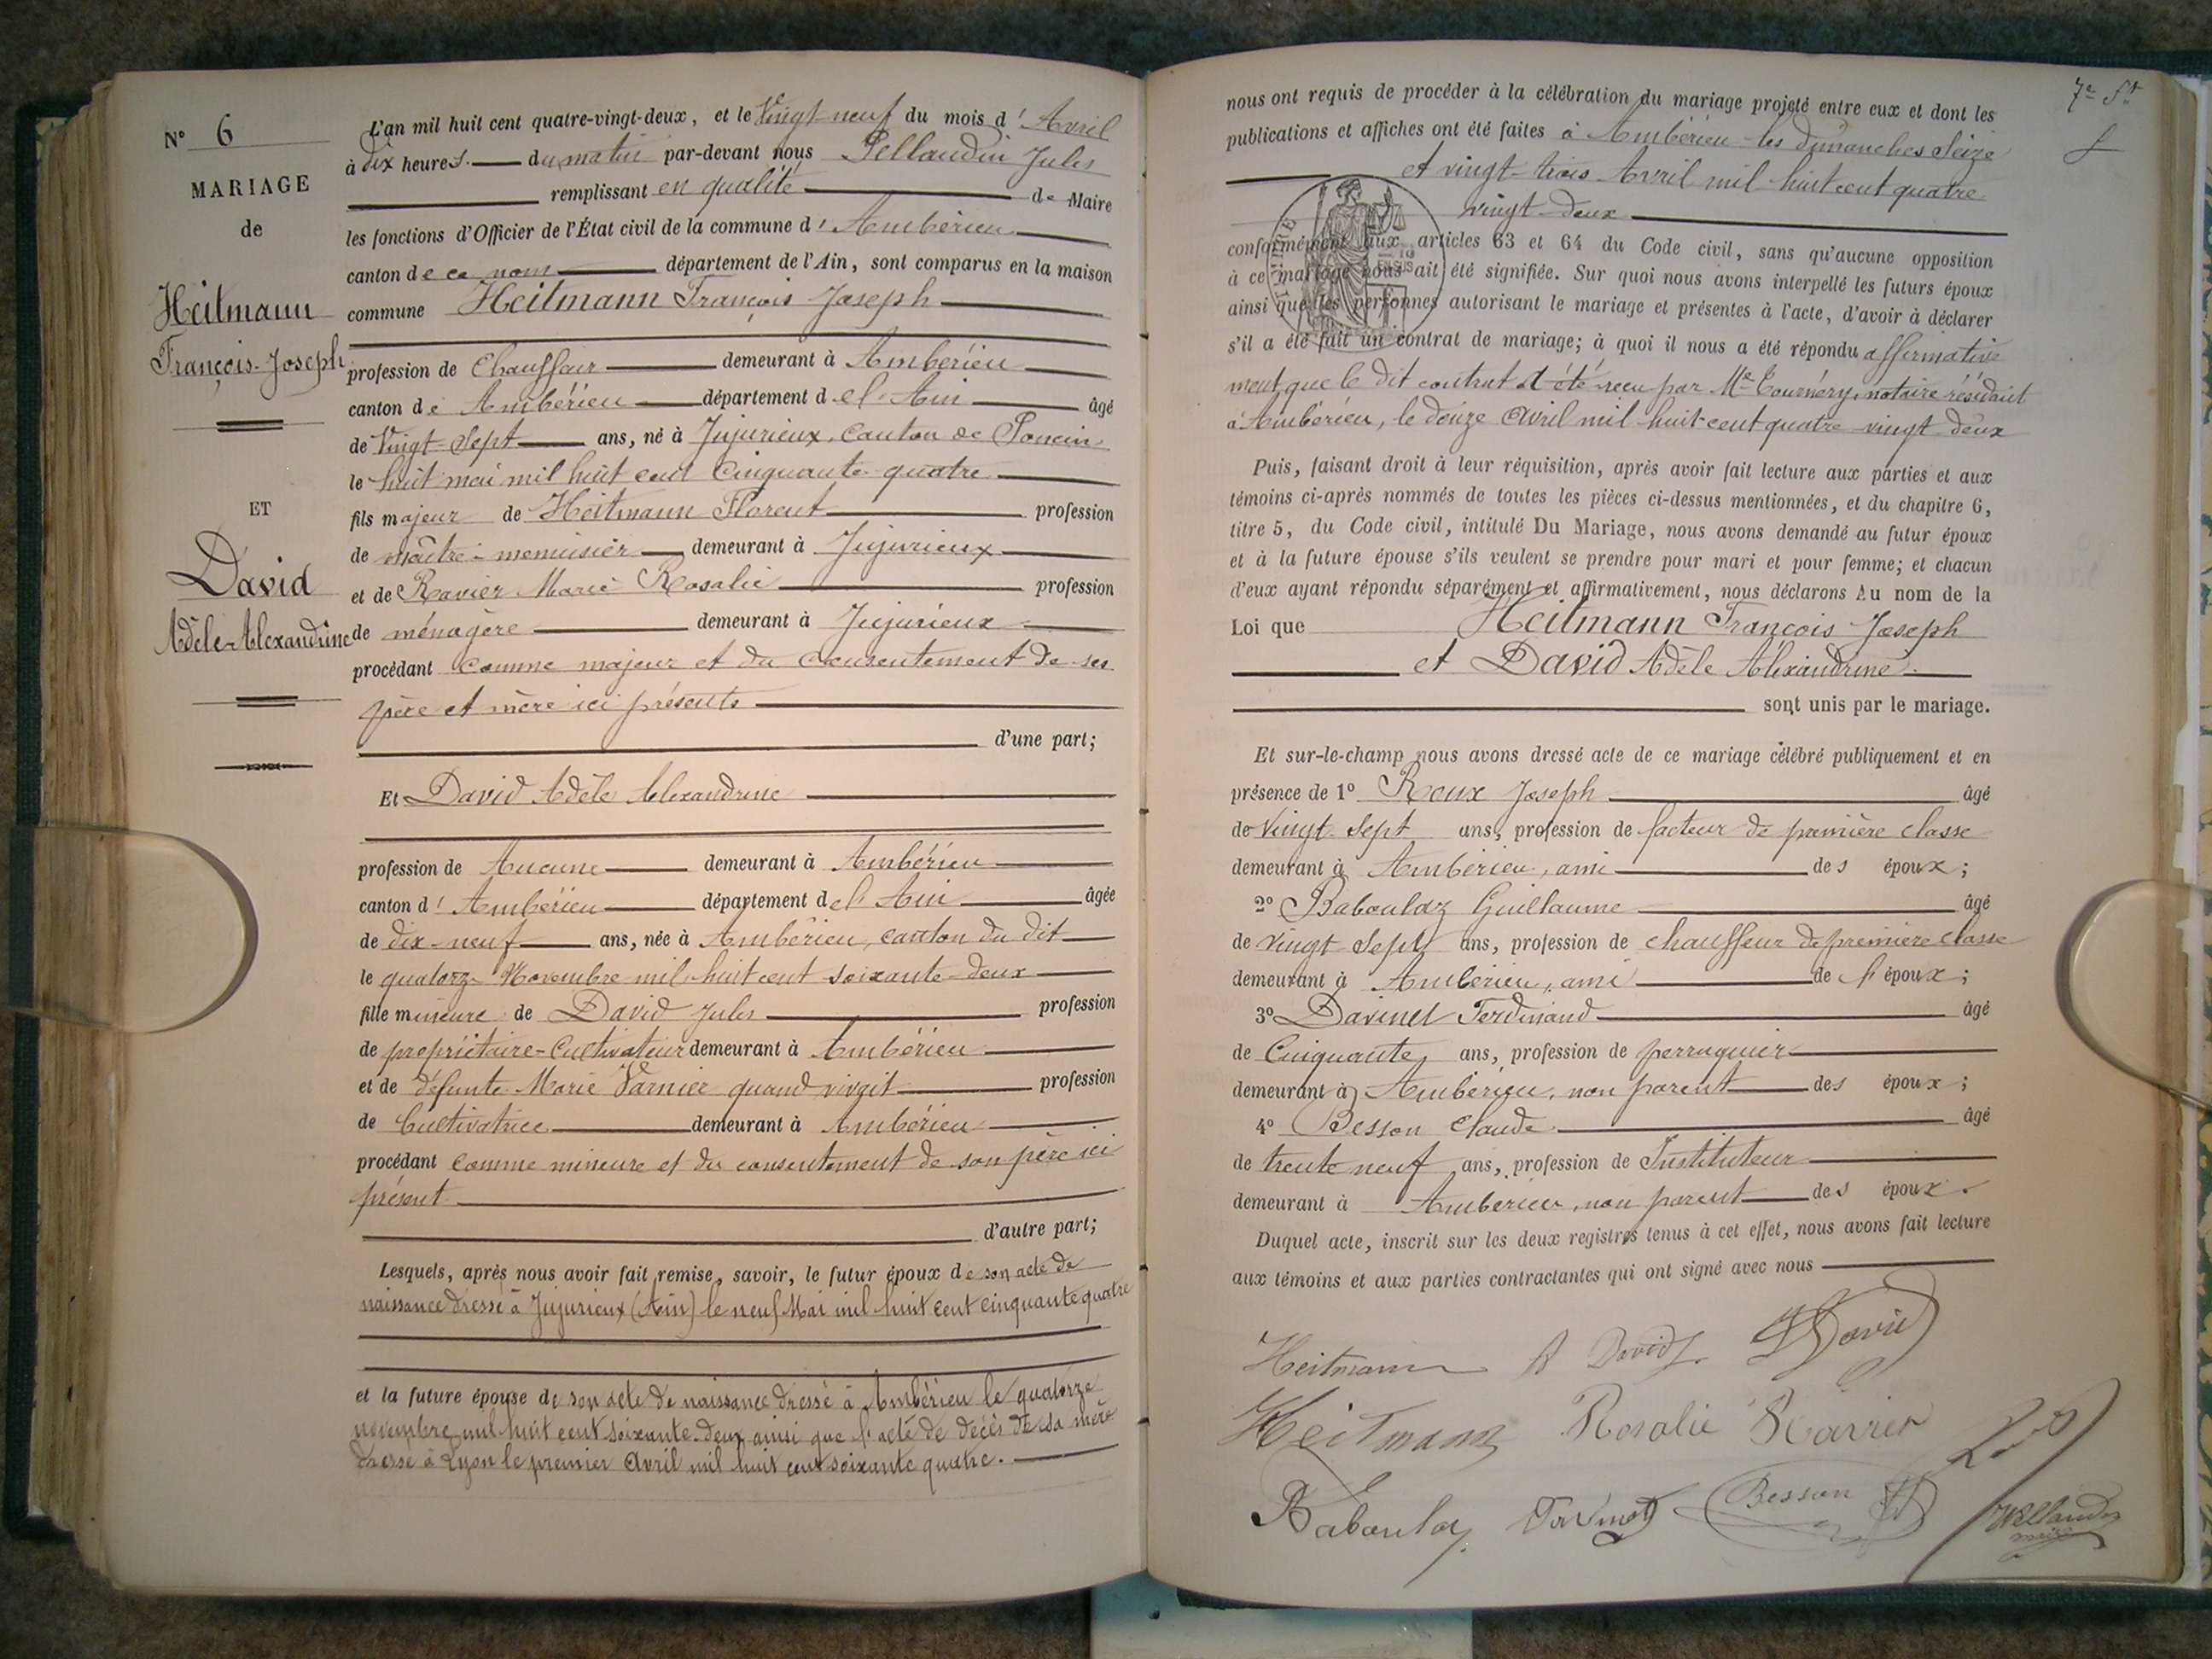 N° 6
MARIAGE
de
Heitmann
François-Joseph
ET
David
Adèle-Alexandrine
L'an mil huit cent quatre-vingt-deux, et le Vingt-neuf du mois d'Avril
à dix heures du matin par-devant nous Pellaudin Jules
remplissant en qualité de Maire
les fonctions d'Officier de l'État civil de la commune d'Ambérieu
canton de ce nom département de l'Ain, sont comparus en la maison
commune Heitmann François Joseph
profession de Chauffeur demeurant à Ambérieu
canton de Ambérieu département de l'Ain âgé
de Vingt-Sept ans, né à Jujurieux, Canton de Poncin
le huit mai mil huit cent Cinquante-quatre
fils majeur de Heitmann Florent profession
de maître-menuisier demeurant à Jujurieux
et de Ravier Marie Rosalie profession
de ménagère demeurant à Jujurieux
procédant comme majeur et du consentement de ses
père et mère ici présents
d'une part;
Et David Adèle Alexandrine
profession de Aucune demeurant à Ambérieu
canton d'Ambérieu département de l'Ain âgée
de dix-neuf ans, née à Ambérieu, canton du dit
le quatorze Novembre mil huit cent soixante-deux
fille mineure de David Jules profession
de propriétaire-Cultivateur demeurant à Ambérieu
et de défunte Marie Varnier quand vivait profession
de Cultivatrice demeurant à Ambérieu
procédant comme mineure et du consentement de son père ici
présent
d'autre part;
Lesquels, après nous avoir fait remise, savoir, le futur époux de son acte de
naissance dressé à Jujurieux (Ain) le neuf Mai mil huit cent cinquante quatre
et la future épouse de son acte de naissance dressé à Ambérieu le quatorze
novembre mil huit cent soixante-deux ainsi que l'acte de décès de sa mère
dressé à Lyon le premier Avril mil huit cent soixante quatre.
7e
nous ont requis de procéder à la célébration du mariage projeté entre eux et dont les
publications et affiches ont été faites à Ambérieu les dimanches Seize
et vingt-trois Avril mil huit cent quatre
vingt-deux
conformément aux articles 63 et 64 du Code civil, sans qu'aucune opposition
à ce mariage nous ait été signifiée. Sur quoi nous avons interpellé les futurs époux
ainsi que les personnes autorisant le mariage et présentes à l'acte, d'avoir à déclarer
s'il a été fait un contrat de mariage; à quoi il nous a été répondu affirmative
ment que le dit contrat a été reçu par Me Tournéry, notaire résidant
à Ambérieu, le douze avril mil huit cent quatre vingt deux
Puis, faisant droit à leur réquisition, après avoir fait lecture aux parties et aux
témoins ci-après nommés de toutes les pièces ci-dessus mentionnées, et du chapitre 6,
titre 5, du Code civil, intitulé Du Mariage, nous avons demandé au futur époux
et à la future épouse s'ils veulent se prendre pour mari et pour femme; et chacun
d'eux ayant répondu séparément et affirmativement, nous déclarons Au nom de la
Loi que Heitmann François Joseph
et David Adèle Alexandrine
sont unis par le mariage.
Et sur-le-champ nous avons dressé acte de ce mariage célébré publiquement et en
présence de 1° Roux Joseph âgé
de Vingt-Sept ans, profession de facteur de première classe
demeurant à Ambérieu, ami des époux;
2° Baboulaz Guillaume âgé
de vingt Sept ans, profession de chauffeur de première classe
demeurant à Ambérieu, ami de l'époux;
3° Davinet Ferdinand âgé
de Cinquante ans, profession de perruquier
demeurant à Ambérieu, non parent des époux;
4° Besson Claude âgé
de trente neuf ans, profession de Instituteur
demeurant à Ambérieu, non parent des époux.
Duquel acte, inscrit sur les deux registres tenus à cet effet, nous avons fait lecture
aux témoins et aux parties contractantes qui ont signé avec nous
Heitmann A David David
Heitmann Rosalie Ravier
Baboulaz Davinet Besson Pellaudin
maire